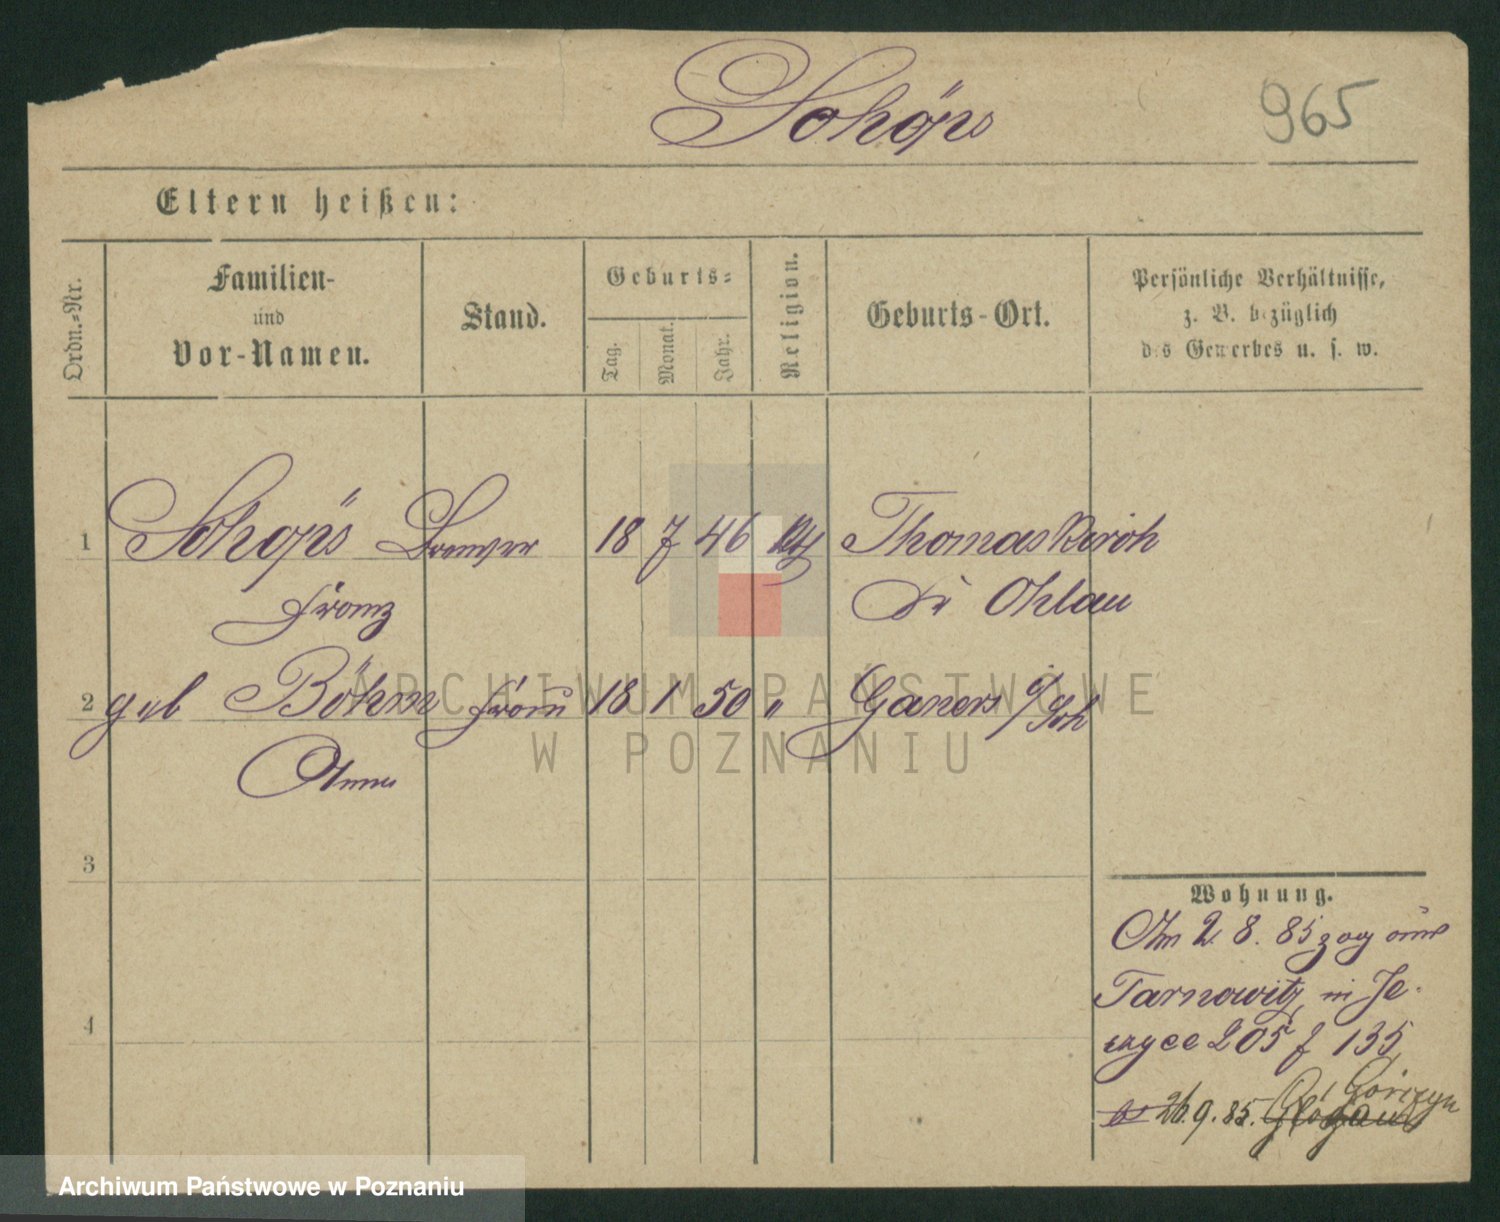 Schöps
965
Eltern heißen:
Ordn.=Nr.
Familien-
und
Vor-Namen.
Stand.
Geburts=
Tag.
Monat.
Jahr.
Religion.
Geburts-Ort.
Persönliche Verhältnisse,
z. B. bezüglich
des Gewerbes u. s. w.
1 Schöps 18 7 46 kth Thomaskirch
Franz Kr Ohlau
2 geb Böhm Frau 18 1 50 "
Anna
ARCHIWUM PAŃSTWOWE
W POZNANIU
3
4
Wohnung.
Am 2. 8. 85 zog aus
Tarnowitz in Je-
rzyce 205 f 135
Górczyn
26.9.85. Glogau
Archiwum Państwowe w Poznaniu